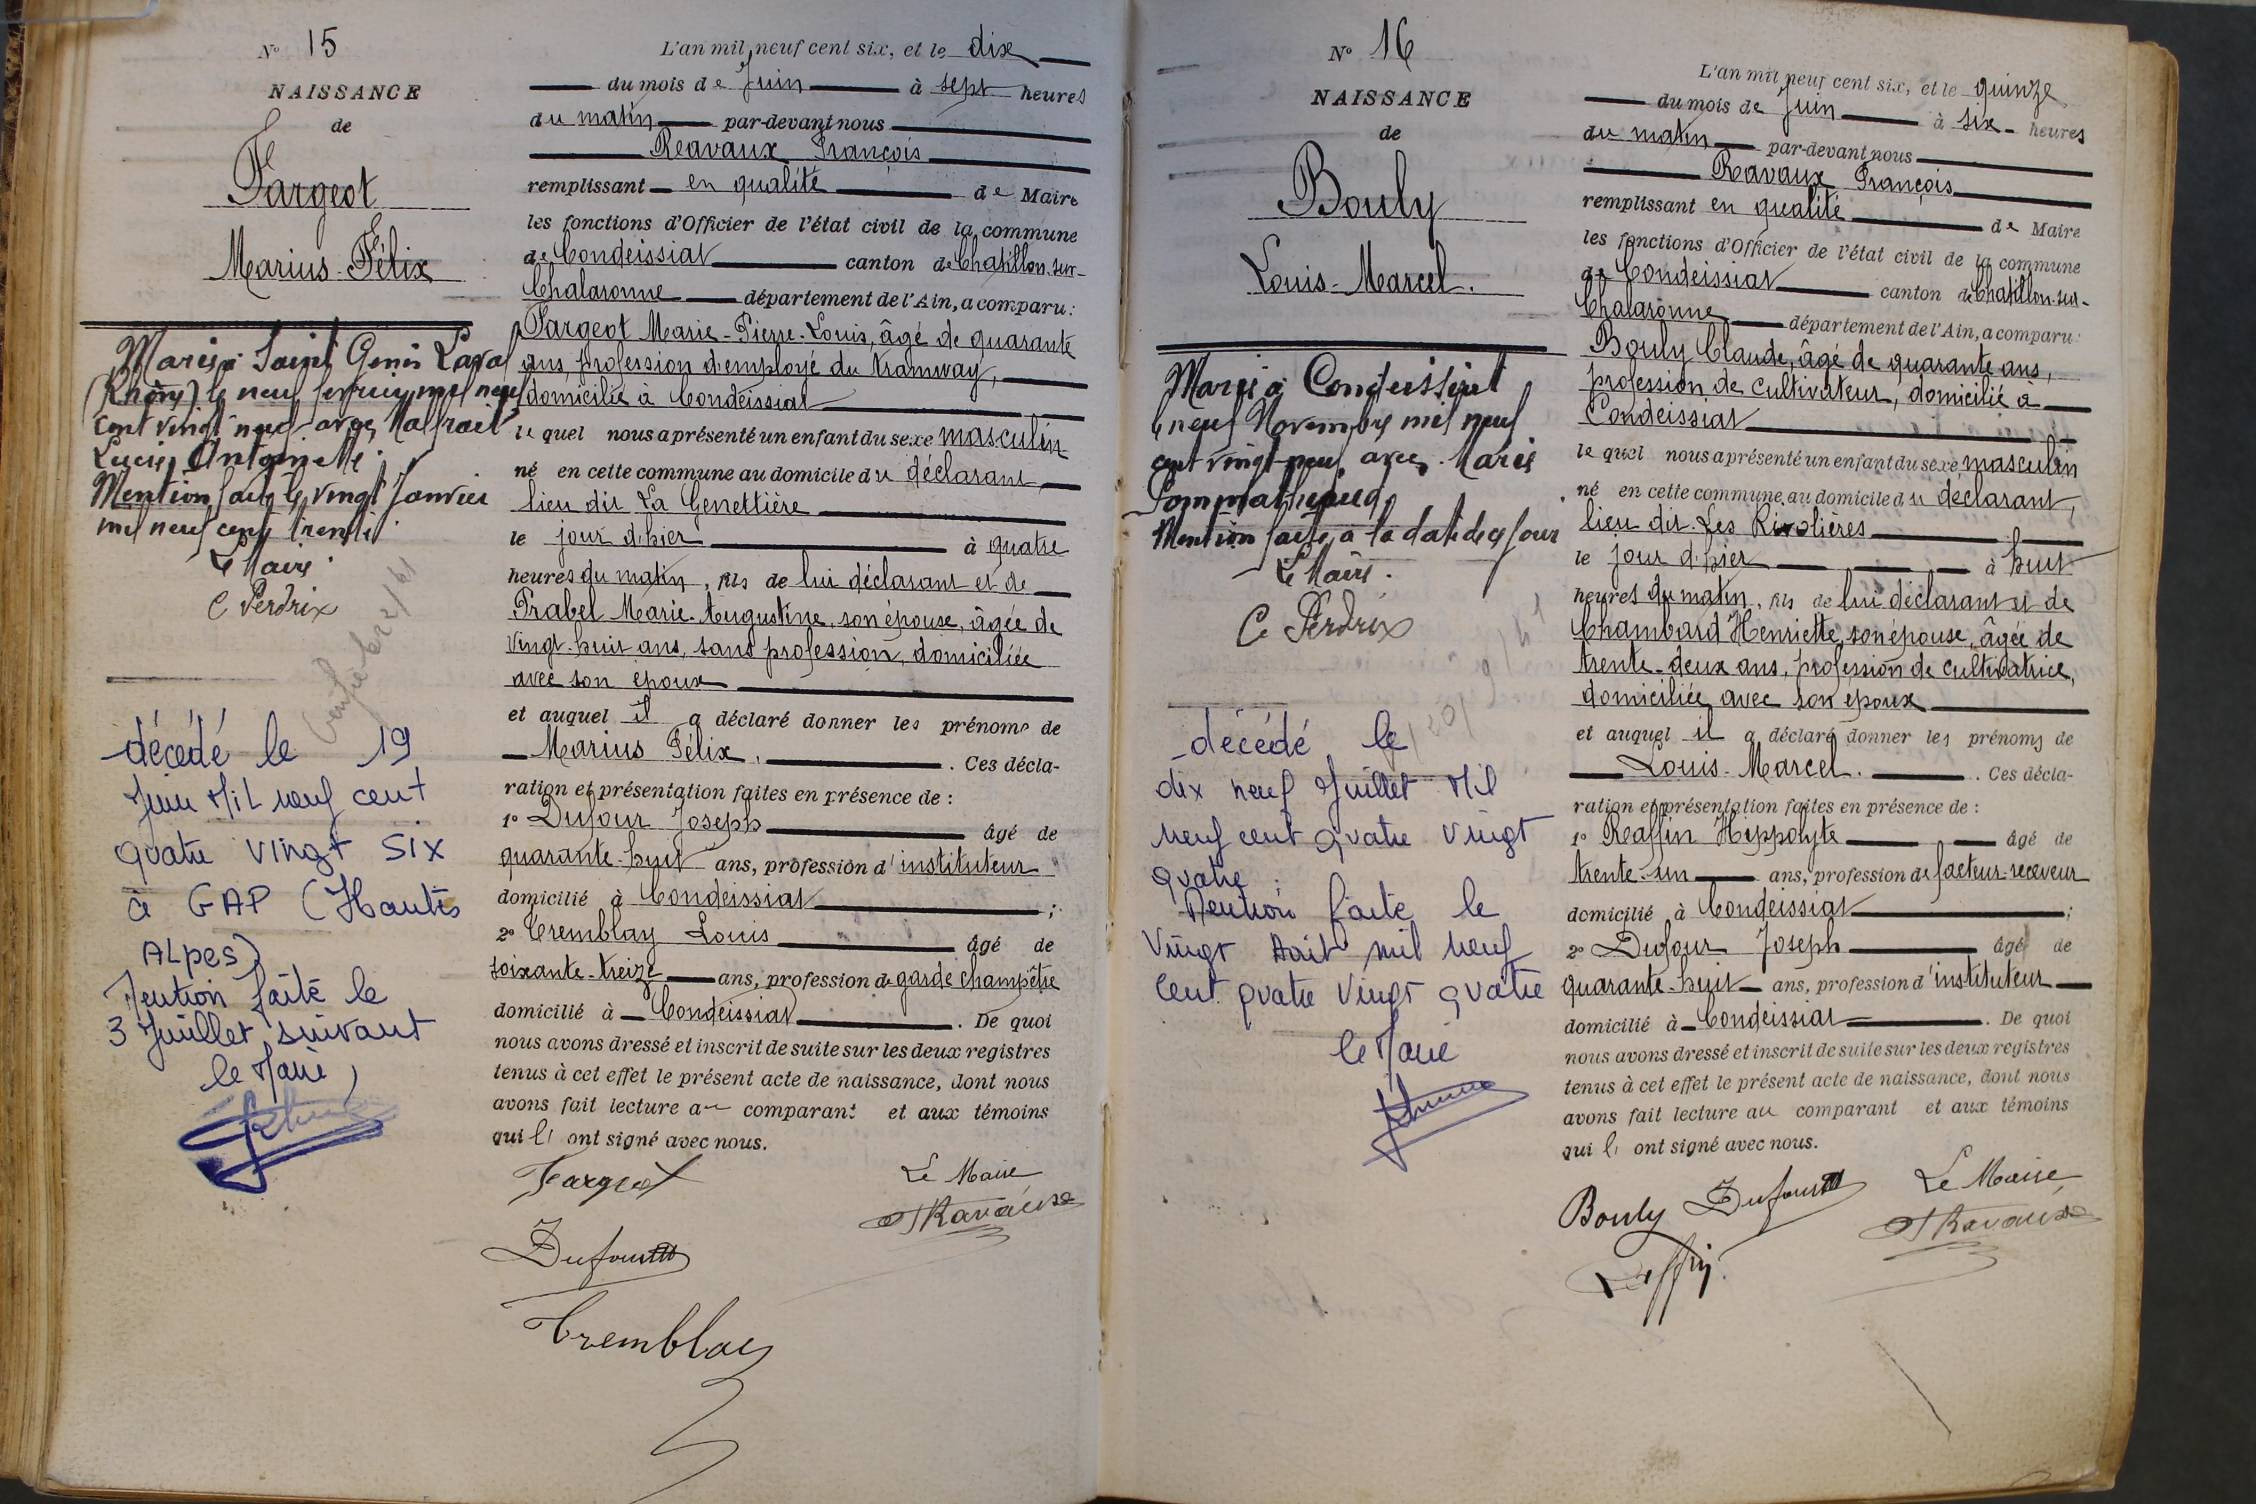 N° 15
NAISSANCE
de
Fargeot
Marius-Félix
Marié à Saint Genis Laval
(Rhône) le neuf janvier mil neuf
cent vingt neuf avec
Lucie Antoinette.
Mention faite le vingt janvier
mil neuf cent trente.
Le Maire.
C Perdrix
décédé le 19
Juin Mil neuf cent
quatre vingt six
à GAP (Hautes
ALpes)
Mention faite le
3 Juillet suivant
le Maire
L'an mil neuf cent six, et le dix
du mois de Juin à sept heures
du matin par-devant nous
Ravaux François
remplissant en qualité de Maire
les fonctions d'Officier de l'état civil de la commune
de Condeissiat canton de Chatillon-sur-
Chalaronne département de l'Ain, a comparu :
Fargeot Marie-Pierre-Louis, âgé de quarante
ans, profession d'employé du tramway,
domicilié à Condeissiat
le quel nous a présenté un enfant du sexe masculin
né en cette commune au domicile du déclarant,
lieu dit La Genettière
le jour d'hier à quatre
heures du matin, fils de lui déclarant et de
Prabel Marie-Augustine, son épouse, âgée de
vingt-huit ans, sans profession, domiciliée
avec son époux
et auquel il a déclaré donner les prénoms de
Marius Félix. . Ces décla-
ration et présentation faites en présence de :
1° Dufour Joseph âgé de
quarante-huit ans, profession d'instituteur
domicilié à Condeissiat ;
2° Tremblay Louis âgé de
soixante-treize ans, profession de garde champêtre
domicilié à Condeissiat . De quoi
nous avons dressé et inscrit de suite sur les deux registres
tenus à cet effet le présent acte de naissance, dont nous
avons fait lecture au comparant et aux témoins
qui l' ont signé avec nous.
Fargeot Le Maire
Ravaux
Dufour
Tremblay
N° 16
NAISSANCE
de
Bouly
Louis-Marcel.
Marié à Condeissiat
le neuf Novembre mil neuf
cent vingt neuf avec Marie
Mention faite à la date de ce jour
Le Maire.
C Perdrix
décédé le
dix neuf Juillet Mil
neuf cent quatre vingt
quatre.
Mention faite le
vingt Aout mil neuf
cent quatre vingt quatre
le Maire
L'an mil neuf cent six, et le quinze
du mois de Juin à six heures
du matin par-devant nous
Ravaux François
remplissant en qualité de Maire
les fonctions d'Officier de l'état civil de la commune
de Condeissiat canton de Chatillon-sur-
Chalaronne département de l'Ain, a comparu :
Bouly Claude, âgé de quarante ans,
profession de cultivateur, domicilié à
Condeissiat
le quel nous a présenté un enfant du sexe masculin
né en cette commune au domicile du déclarant,
lieu dit Les Rivolières
le jour d'hier à huit
heures du matin, fils de lui déclarant et de
Chambard Henriette, son épouse, âgée de
trente-deux ans, profession de cultivatrice,
domiciliée avec son époux
et auquel il a déclaré donner les prénoms de
Louis-Marcel. . Ces décla-
ration et présentation faites en présence de :
1° Raffin Hippolyte âgé de
trente-un ans, profession de facteur-receveur
domicilié à Condeissiat ;
2° Dufour Joseph âgé de
quarante-huit ans, profession d'instituteur
domicilié à Condeissiat . De quoi
nous avons dressé et inscrit de suite sur les deux registres
tenus à cet effet le présent acte de naissance, dont nous
avons fait lecture au comparant et aux témoins
qui l' ont signé avec nous.
Bouly Dufour Le Maire
Ravaux
Raffin